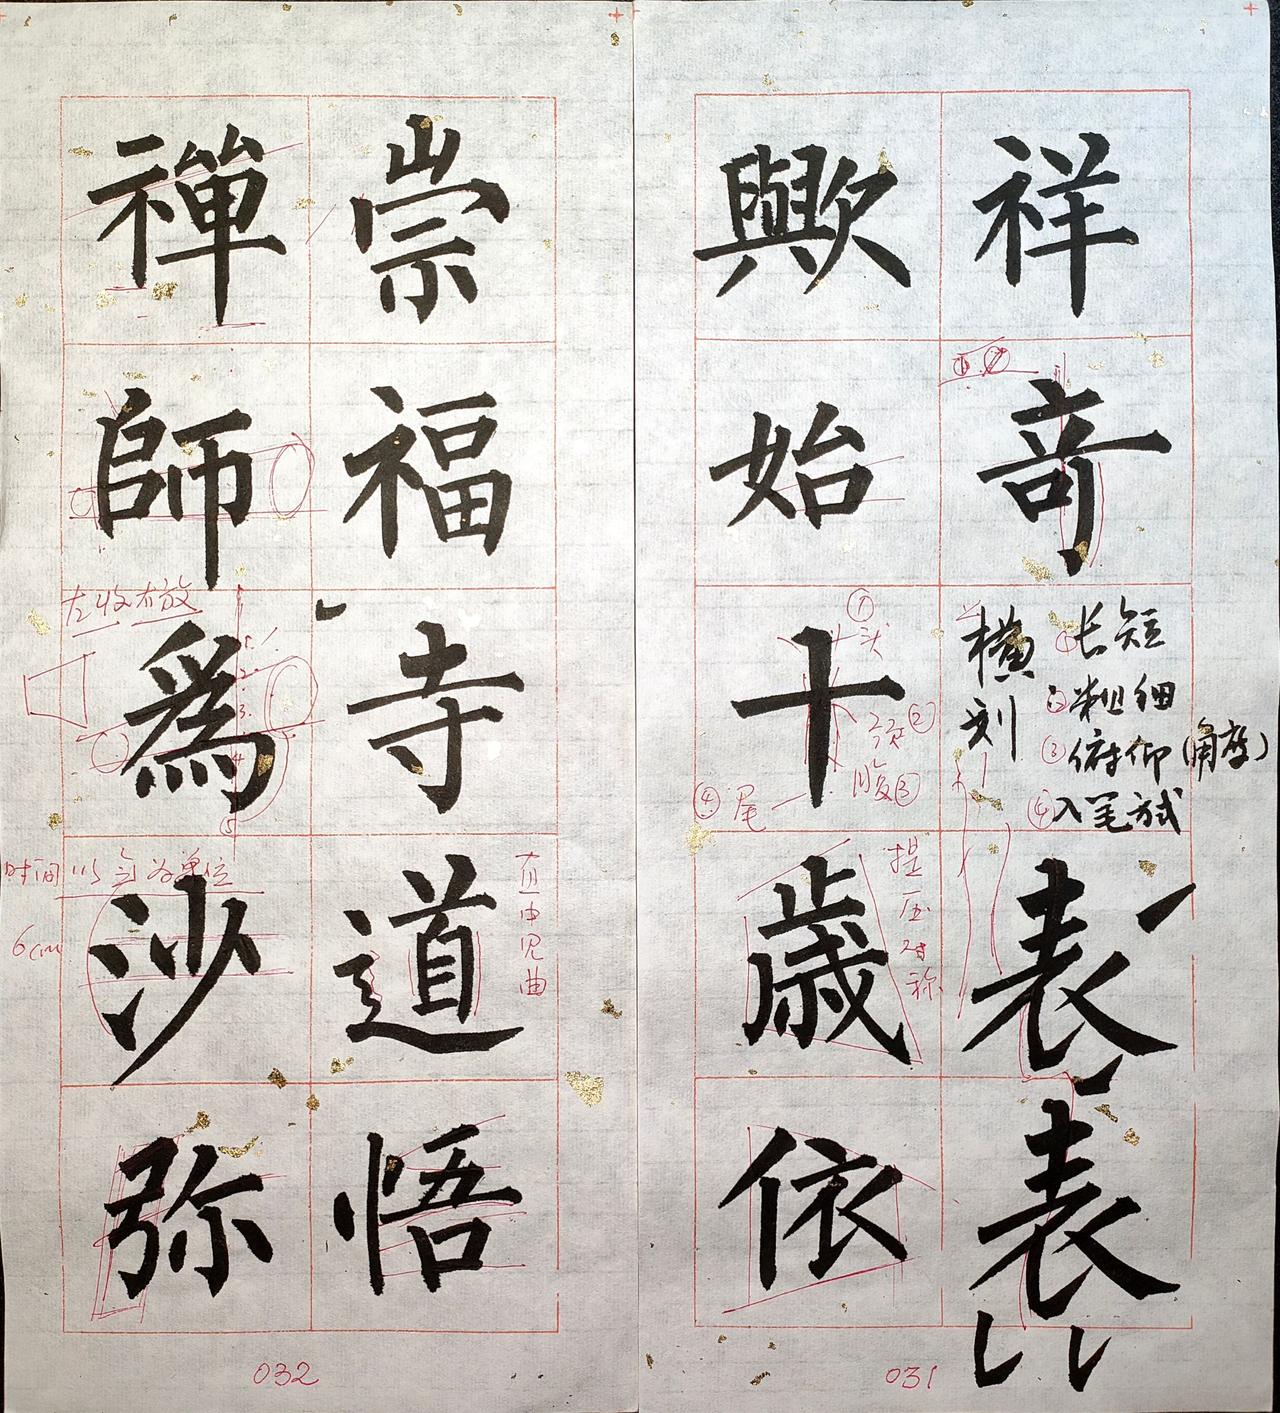 祥
奇
横
刻
①长短
②粗细
③俯仰(角度)
④入笔方式
表
表
歟
始
十
①头
颈②
腹③
④尾
歲
提压对称
依
031
崇
福
寺
道
直中见曲
悟
禪
師
左收右放
為
1.
2.
3.
4
⑤
时间以
为单位
6cm
沙
弥
032